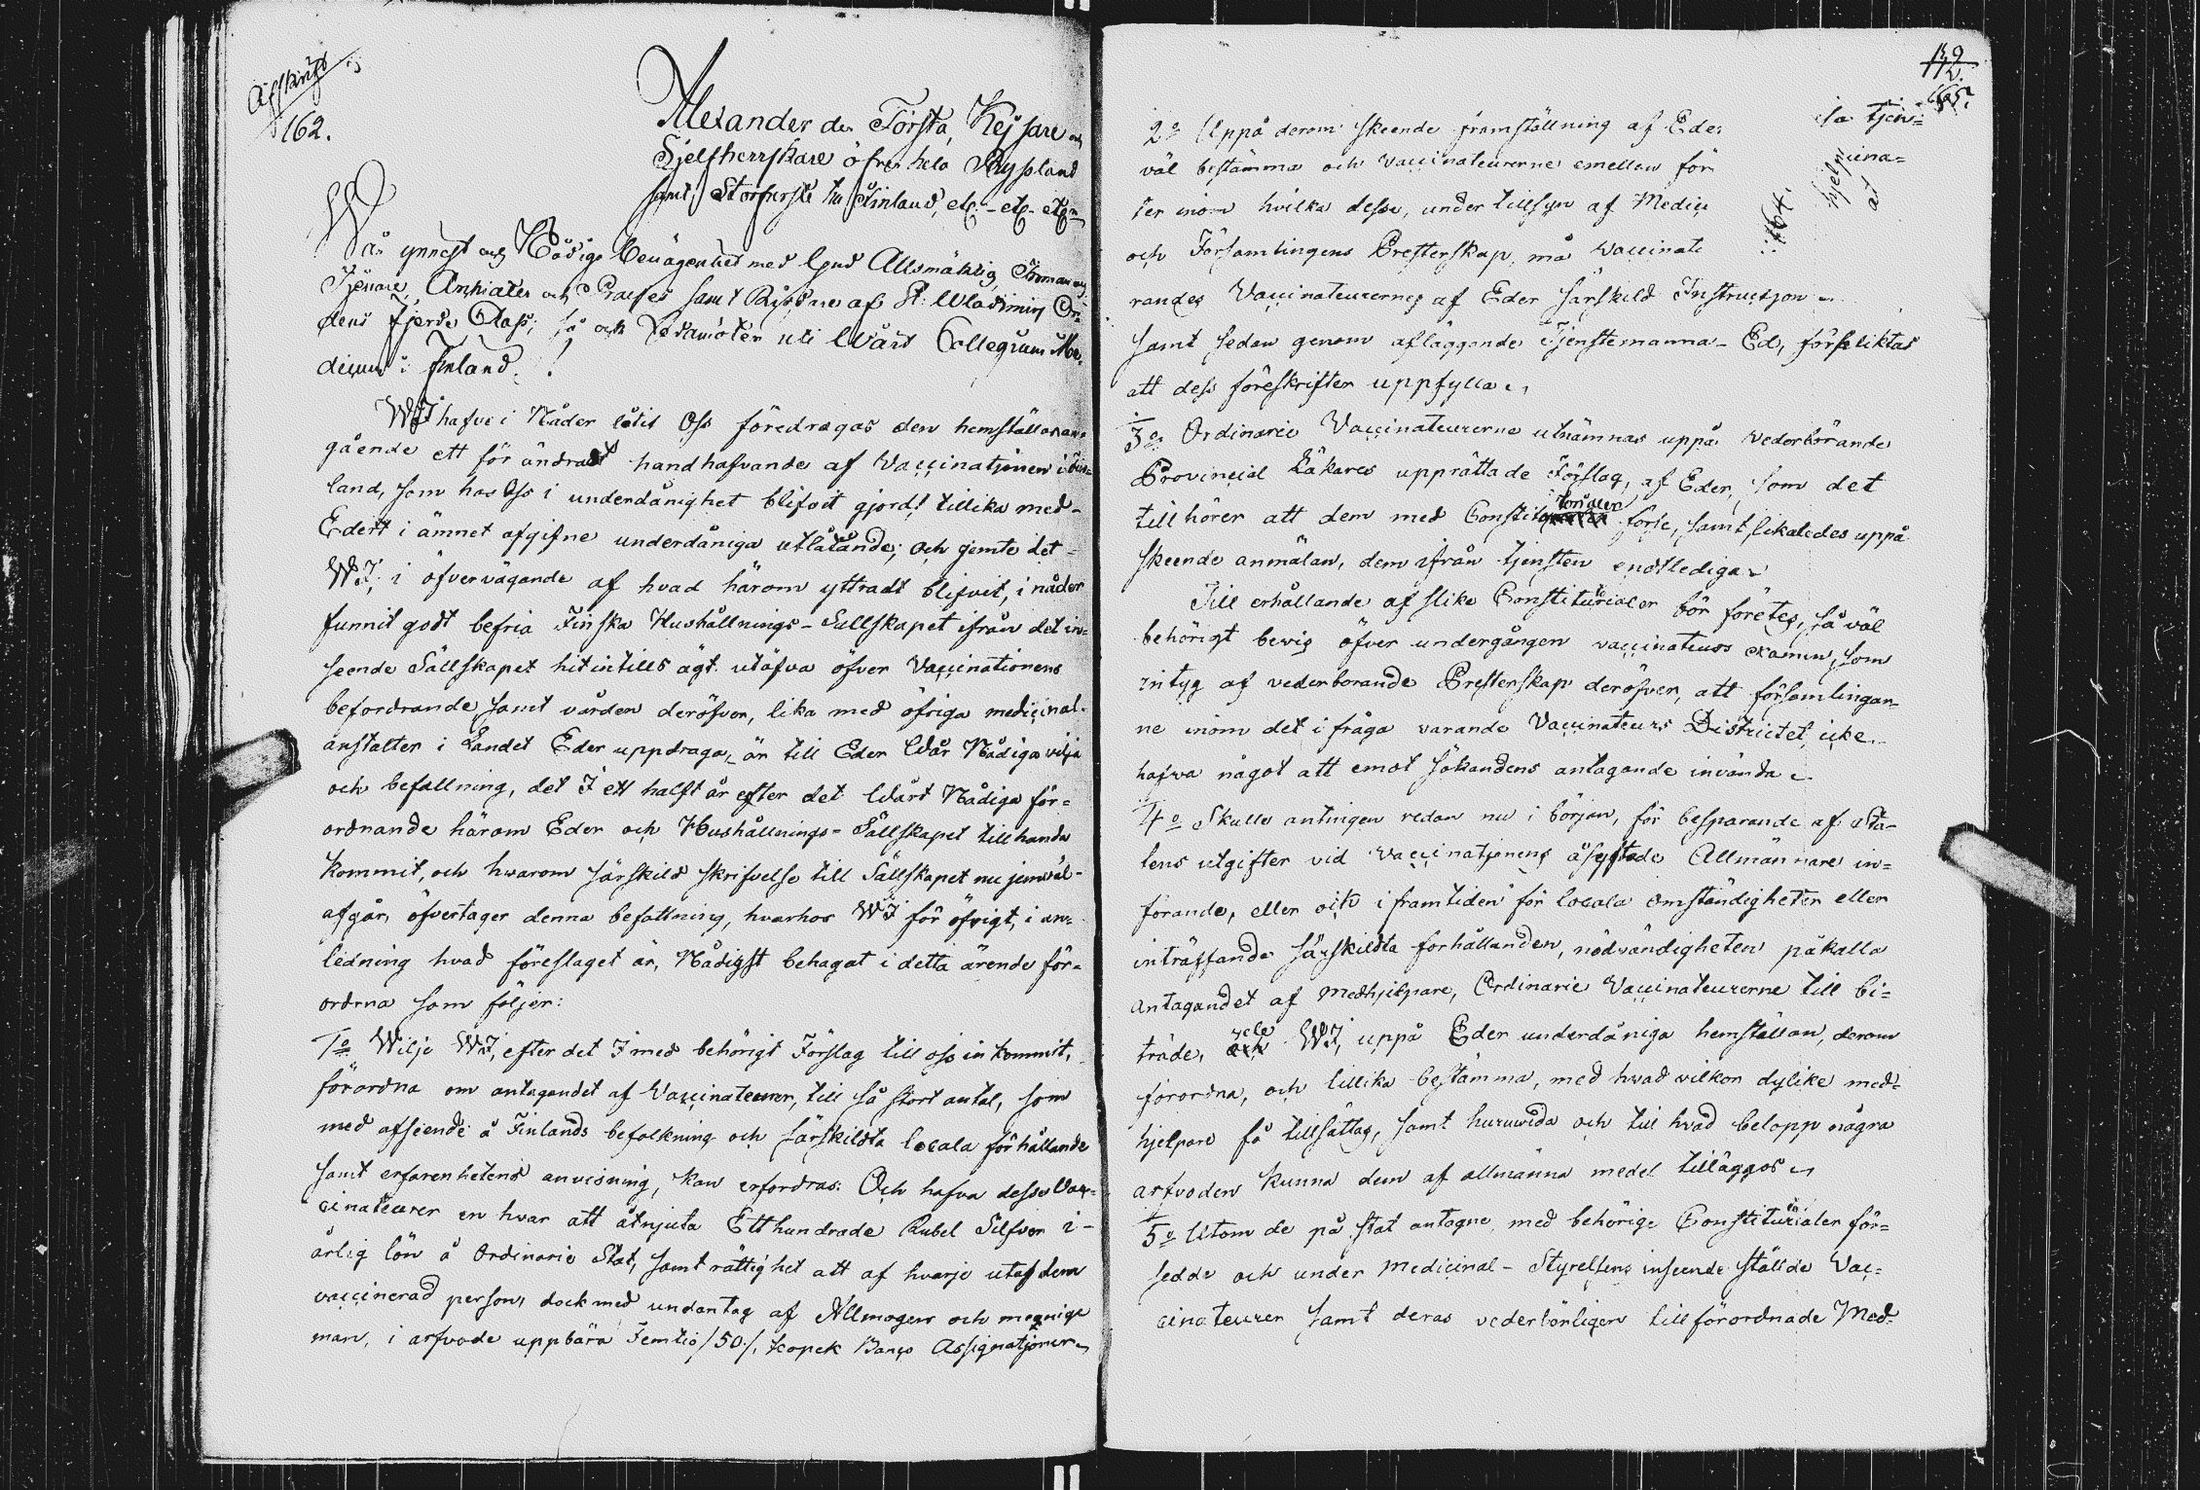 Afskrift
162.
Alexander den Första, Kejsare och
Sjelfherrskare öfver hela Ryssland
samt Storfurste till Finland, etc:- etc- etc-
Wår ynnest och Nådige benägenhet med Gud Allsmäktig, Troman och
Tjenare, Archiater och Praeses samt Riddare af St: Wladimirs Or-
dens fjerde Class; så och Ledamöter uti Wårt Collegium Me-
dicum i Finland!
WJ hafve i Nåder låtit Oss föredragas den hemställan an-
gående ett förändradt handhafvande af Vaccinationen i Fin-
land, som hos Oss i underdånighet blifvit gjord! tillika med-
Edert i ämnet afgifne underdåniga utlåtande; och gemte det-
WJ, i öfvervägande af hvad härom yttradt blifvit, i nåder
funnit godt befria Finska Hushållnings-Sällskapet ifrån det in-
seende Sällskapet hitintills ägt utöfva öfver Vaccinationens
befordrande samt vården deröfver, lika med öfriga medicinal-
anstalter i Landet Eder uppdraga, är till Eder Wår Nådiga vilja
och befallning, det I ett halft år efter det Wårt Nådiga för-
ordnande härom Eder och Hushållnings-Sällskapet tillhanda
kommit, och hvarom särskild skrifvelse till Sällskapet nu jemväl-
afgår, öfvertager denna befattning, hvarhos WJ för öfrigt, i an-
ledning hvad föreslaget är, Nådigst behagat i detta ärende för-
ordna som följer:
1o Wilje WJ, efter det I med behörigt Förslag till oss in kommit,
förordna om antagandet af Vaccinateurer, till så stort antal, som
med afseende å Finlands befolkning och särskildta locala förhållande
samt erfarenhetens anvisning, kan erfordras: Och hafva desse Vac-
cinateurer en hvar att åtnjuta Ett hundrade Rubel Silfver i-
årlig lön å Ordinarie Stat, samt rättighet att af hvarje utaf dem
vaccinerad person, dock med undantag af Allmogen och menige
man, i arfvode uppbära Femtio /50./. kopek Banco Assignationer
139
112.
165.
2o Uppå derom skeende framställning af Eder
väl bestämma och vaccinateurerne emellan för
ter inom hvilka desse, under tillsyn af Medici
och Församlingens Presterskap, må vaccinati
randes Vaccinateurernes af Eder särskild Instruction
samt sedan genom afläggande Tjenstemanna-Ed, förpliktas
att dess föreskrifter uppfylla
la tjen-
cina-
hjelp
a
164.
3o Ordinarie Vaccinateurerne utnämnas uppå vederbörande
Provincial Läkares upprättade Förslag, af Eder, som det
tillhörer att dem med Constitutorialer förse, samt, likaledes uppå
skeende anmälan, dem ifrån tjensten entlediga
Till erhållande af slike Constitutorialer bör företes, så väl
behörigt bevis öfver undergången vaccinateurs examen, som
intyg af vederborande Presterskap deröfver, att församlingar-
ne inom det i fråga varande Vaccinateurs Districtet, icke
hafva något att emot sökandens antagande invända
4o Skulle antingen redan nu i början, för besparande af Sta-
tens utgifter vid vaccinationens åsyftade Allmännare in-
förande, eller och i framtiden för locala omständigheter eller
inträffande särskildta forhållanden, nödvändigheten påkalla
antagandet af medhjelpare, Ordinarie Vaccinateurerne till bi-
träde, vele WJ, uppå Eder underdåniga hemställan, derom
förordna, och tillika bestämma, med hvad vilkor dylike med-
hjelpare få tillsättas, samt huruvida och till hvad belopp några
arfvoden kunna dem af allmänna medel tilläggas
5o Utom de på stat antagne, med behörige Constitutorialer för-
sedde och under Medicinal-Styrelsens inseende ställde Vac-
cinateurer samt deras vederbörligen tillförordnade Med-